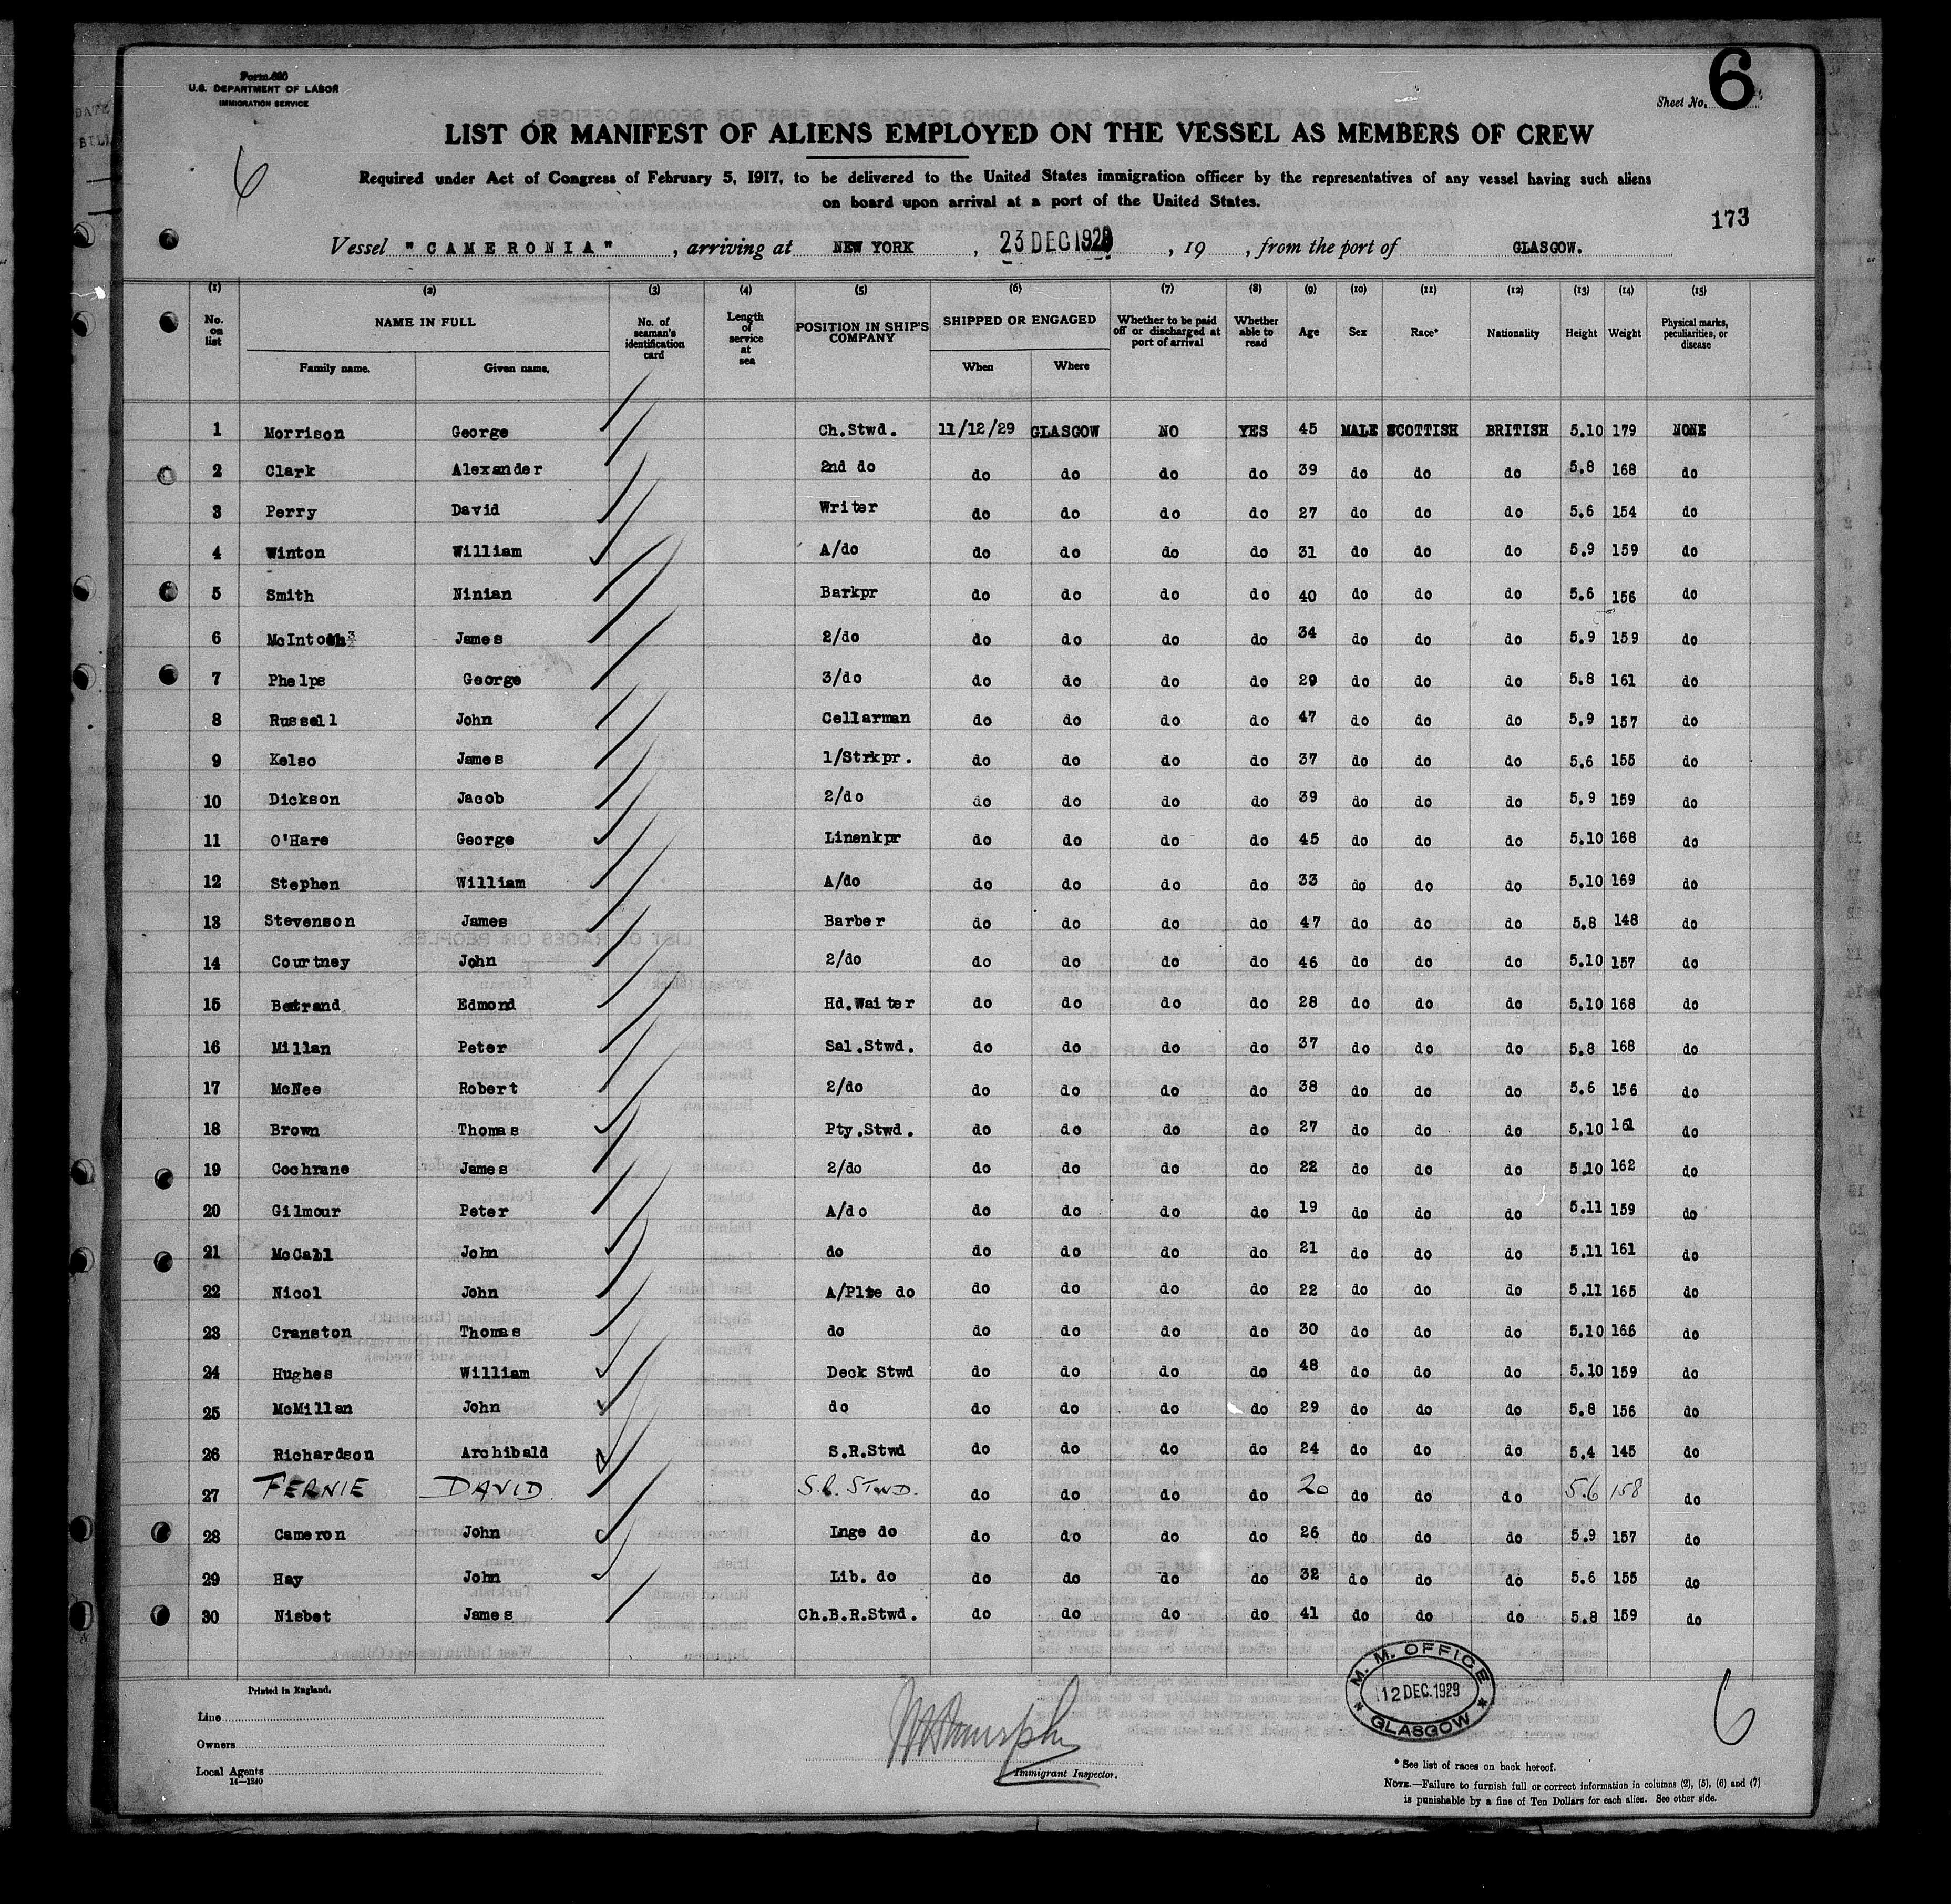 Form 680
U.S. DEPARTMENT OF LABOR
IMMIGRATION SERVICE
Sheet No. 6
6
LIST OR MANIFEST OF ALIENS EMPLOYED ON THE VESSEL AS MEMBERS OF CREW
Required under Act of Congress of February 5, 1917, to be delivered to the United States immigration officer by the representatives of any vessel having such aliens
on board upon arrival at a port of the United States.
173
Vessel "CAMERONIA", arriving at NEW YORK, 23 DEC 1929, 19 , from the port of GLASGOW.
(1) (2) (3) (4) (5) (6) (7) (8) (9) (10) (11) (12) (13) (14) (15)
No. on list NAME IN FULL No. of seaman's identification card Length of service at sea POSITION IN SHIP'S COMPANY SHIPPED OR ENGAGED Whether to be paid off or discharged at port of arrival Whether able to read Age Sex Race* Nationality Height Weight Physical marks, peculiarities, or disease
Family name. Given name. When Where
1 Morrison George Ch.Stwd. 11/12/29 GLASGOW NO YES 45 MALE SCOTTISH BRITISH 5.10 179 NONE
2 Clark Alexander 2nd do do do do do 39 do do do 5.8 168 do
3 Perry David Writer do do do do 27 do do do 5.6 154 do
4 Winton William A/do do do do do 31 do do do 5.9 159 do
5 Smith Ninian Barkpr do do do do 40 do do do 5.6 156 do
6 McIntosh James 2/do do do do do 34 do do do 5.9 159 do
7 Phelps George 3/do do do do do 29 do do do 5.8 161 do
8 Russell John Cellarman do do do do 47 do do do 5.9 157 do
9 Kelso James 1/Strkpr. do do do do 37 do do do 5.6 155 do
10 Dickson Jacob 2/do do do do do 39 do do do 5.9 159 do
11 O'Hare George Linenkpr do do do do 45 do do do 5.10 168 do
12 Stephen William A/do do do do do 33 do do do 5.10 169 do
13 Stevenson James Barber do do do do 47 do do do 5.8 148 do
14 Courtney John 2/do do do do do 46 do do do 5.10 157 do
15 Bertrand Edmond Hd.Waiter do do do do 28 do do do 5.10 168 do
16 Millan Peter Sal.Stwd. do do do do 37 do do do 5.8 168 do
17 McNee Robert 2/do do do do do 38 do do do 5.6 156 do
18 Brown Thomas Pty.Stwd. do do do do 27 do do do 5.10 161 do
19 Cochrane James 2/do do do do do 22 do do do 5.10 162 do
20 Gilmour Peter A/do do do do do 19 do do do 5.11 159 do
21 McCall John do do do do do 21 do do do 5.11 161 do
22 Nicol John A/Plte do do do do do 22 do do do 5.11 165 do
23 Cranston Thomas do do do do do 30 do do do 5.10 166 do
24 Hughes William Deck Stwd do do do do 48 do do do 5.10 159 do
25 McMillan John do do do do do 29 do do do 5.8 156 do
26 Richardson Archibald S.R.Stwd do do do do 24 do do do 5.4 145 do
27 FERNIE DAVID S.R. STWD. do do do do 20 do do do 5.6 158 do
28 Cameron John Lnge do do do do do 26 do do do 5.9 157 do
29 Hay John Lib. do do do do do 32 do do do 5.6 155 do
30 Nisbet James Ch.B.R.Stwd. do do do do 41 do do do 5.8 159 do
Printed in England.
Line
Owners
Local Agents
14—1240
Immigrant Inspector.
M. M. OFFICE
12 DEC. 1929
GLASGOW
6
* See list of races on back hereof.
NOTE.—Failure to furnish full or correct information in columns (2), (5), (6) and (7)
is punishable by a fine of Ten Dollars for each alien. See other side.